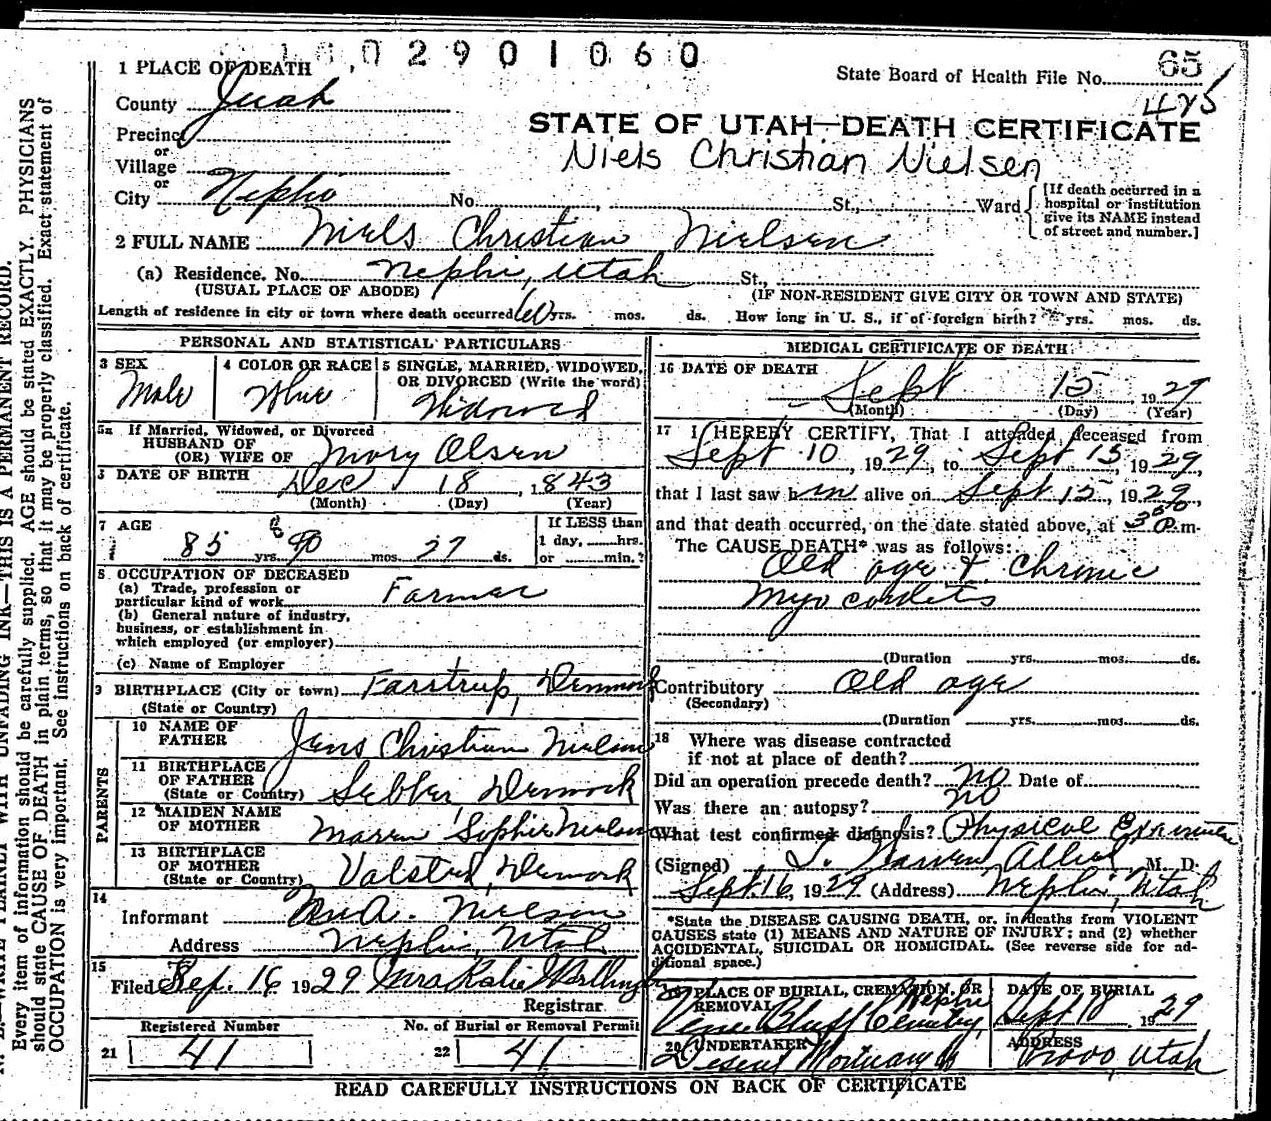 02901060
65
State Board of Health File No.
475
1 PLACE OF DEATH
County Juab
STATE OF UTAH—DEATH CERTIFICATE
Precinct
or
Village
Niels Christian Nielsen
or
City Nephi No. , St., Ward
[If death occurred in a hospital or institution give its NAME instead of street and number.]
2 FULL NAME Niels Christian Nielsen
(a) Residence. No. Nephi, Utah St.,
(USUAL PLACE OF ABODE) (IF NON-RESIDENT GIVE CITY OR TOWN AND STATE)
Length of residence in city or town where death occurred 60 yrs. mos. ds. How long in U. S., if of foreign birth? yrs. mos. ds.
PERSONAL AND STATISTICAL PARTICULARS
3 SEX
Male
4 COLOR OR RACE
White
5 SINGLE, MARRIED, WIDOWED, OR DIVORCED (Write the word)
Widowed
5a If Married, Widowed, or Divorced
HUSBAND OF
(OR) WIFE OF Mary Olsen
DATE OF BIRTH Dec 18, 1843
(Month) (Day) (Year)
7 AGE
85 yrs. mos. 27 ds.
If LESS than
1 day, hrs.
or min.?
8 OCCUPATION OF DECEASED
(a) Trade, profession or
particular kind of work Farmer
(b) General nature of industry,
business, or establishment in
which employed (or employer)
(c) Name of Employer
9 BIRTHPLACE (City or town) Farstrup, Denmark
(State or Country)
PARENTS
10 NAME OF
FATHER Jens Christian Nielson
11 BIRTHPLACE
OF FATHER
(State or Country) Sebber Denmark
12 MAIDEN NAME
OF MOTHER Maren Sophie Nielson
13 BIRTHPLACE
OF MOTHER
(State or Country) Valsted, Denmark
14
Informant A. Nielson
Address Nephi, Utah
15
Filed Sep. 16 1929 Mrs Katie Worthington
Registrar.
Registered Number
21 41
No. of Burial or Removal Permit
22 41
MEDICAL CERTIFICATE OF DEATH
16 DATE OF DEATH
Sept 15, 1929
(Month) (Day) (Year)
17 I HEREBY CERTIFY, That I attended deceased from
Sept 10, 1929, to Sept 15, 1929,
that I last saw him alive on Sept 15, 1929
and that death occurred, on the date stated above, at P.m.
The CAUSE DEATH* was as follows:
Old age & Chronic
Myocarditis
(Duration yrs. mos. ds.
Contributory Old age
(Secondary)
(Duration yrs. mos. ds.
18 Where was disease contracted
if not at place of death?
Did an operation precede death? no Date of
Was there an autopsy? no
What test confirmed diagnosis? Physical Examine
(Signed) Allred M. D.
Sept. 16, 1929 (Address) Nephi, Utah
*State the DISEASE CAUSING DEATH, or, in deaths from VIOLENT
CAUSES state (1) MEANS AND NATURE OF INJURY; and (2) whether
ACCIDENTAL, SUICIDAL OR HOMICIDAL. (See reverse side for additional space.)
PLACE OF BURIAL, CREMATION, OR
REMOVAL Nephi
Vine Bluff Cemetery
DATE OF BURIAL
Sept 18 1929
20 UNDERTAKER
Deseret Mortuary
ADDRESS
Provo, Utah
READ CAREFULLY INSTRUCTIONS ON BACK OF CERTIFICATE
WRITE PLAINLY WITH UNFADING INK—THIS IS A PERMANENT RECORD.
Every item of information should be carefully supplied. AGE should be stated EXACTLY. PHYSICIANS
should state CAUSE OF DEATH in plain terms, so that it may be properly classified. Exact statement of
OCCUPATION is very important. See instructions on back of certificate.